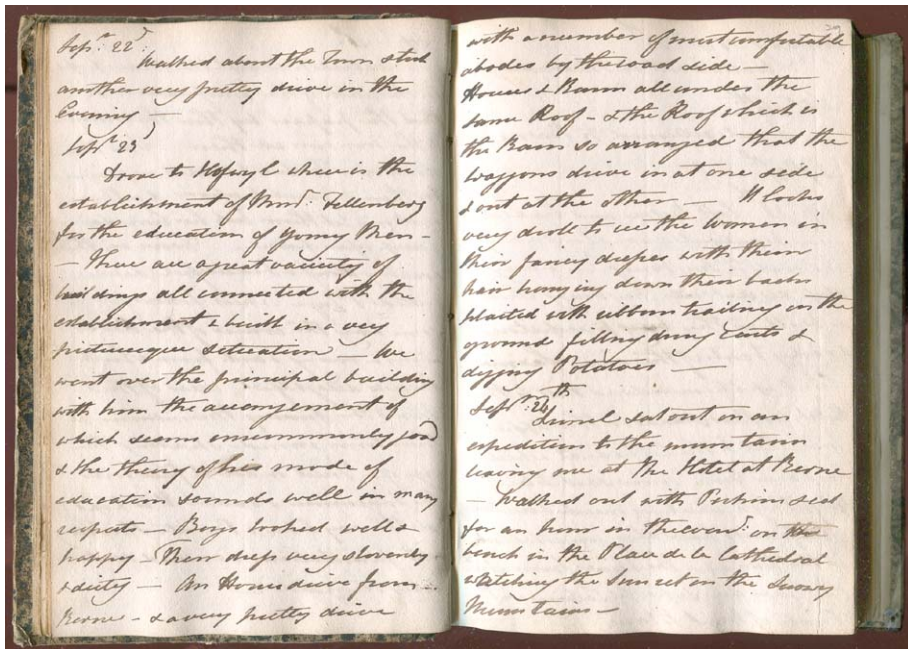 Sepr. 22d:
Walked about the Town & took
another very pretty drive in the
Evening —
Sepr. 23d
Drove to Hofwyl where is the
establishment of Monr: Fellenberg
for the education of young Men —
— There are a great variety of
buildings all connected with the
establishment & built in a very
picturesque situation — We
went over the principal building
with him the arrangement of
which seems uncommonly good
& the theory of his mode of
education sounds well in many
respects — Boys looked well &
happy — Their dress very slovenly
& dirty — An Hours drive from
Berne — & a very pretty drive
with a number of most comfortable
abodes by the road side —
Houses & Barns all under the
same Roof — & the Roof which is
the Barn so arranged that the
waggons drive in at one side
& out at the other — It looks
very droll to see the Women in
their fancy dresses with their
hair hanging down their backs
plaited with ribbons trailing on the
ground filling dung carts &
digging Potatoes —
Sepr: 24th
Lionel sat out on an
expedition to the mountains
leaving me at the Hotel at Berne
— Walked out with sat
for an hour in the on the
bench in the Place de la Cathedral
watching the Sun set on the Snowy
Mountains —